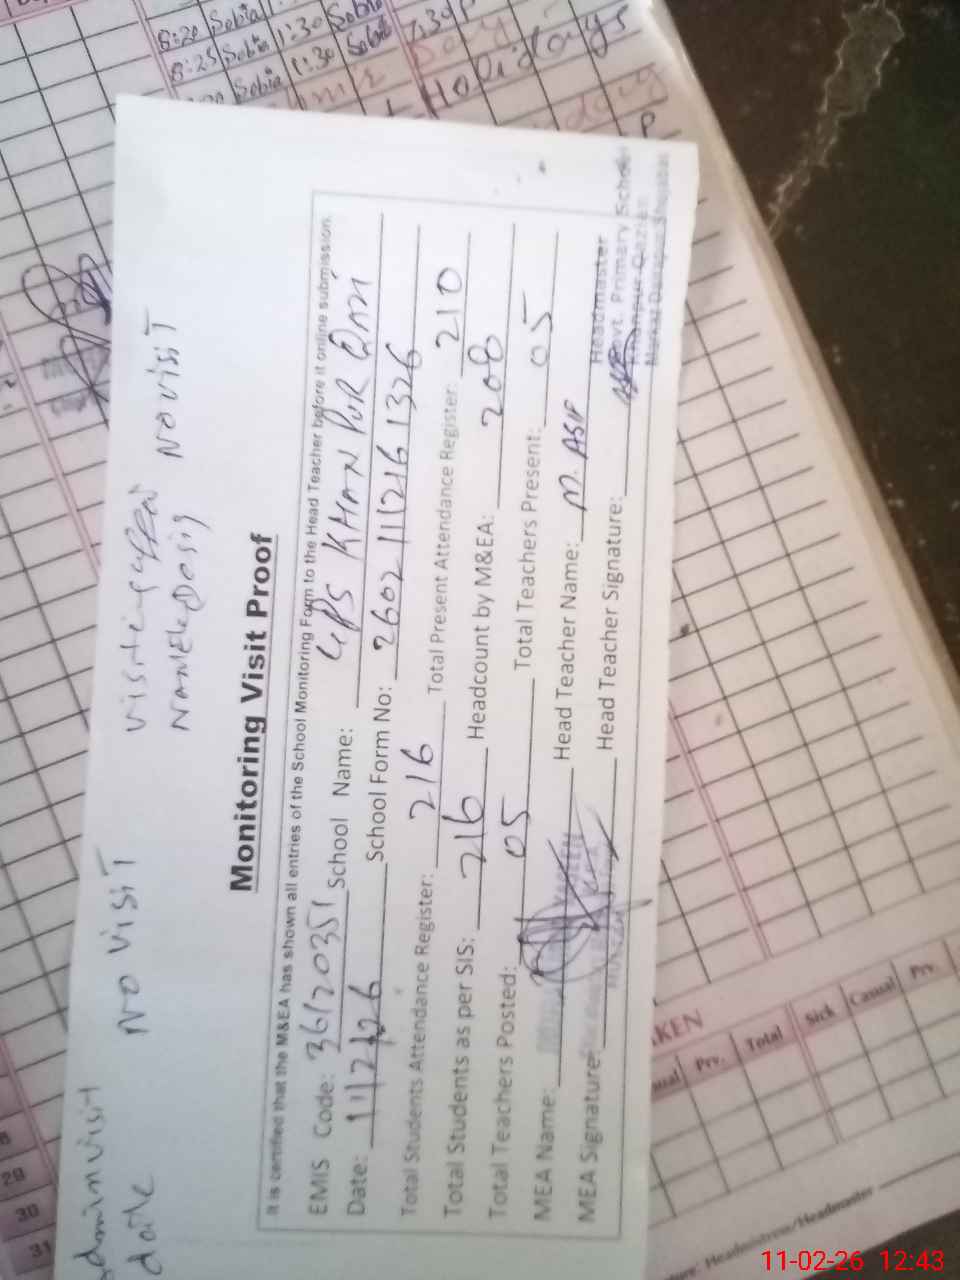 8:20 Sobia 1:30 Sobia
8:25 Sobia 1:30 Sobia 7:30
Sobia
Holidays
P
Adminvisit No visiT visiting
date NAME & Desig No visiT
Monitoring Visit Proof
It is certified that the M&EA has shown all entries of the School Monitoring Form to the Head Teacher before it online submission.
EMIS Code: 36120351 School Name: GPS KHAN PUR Qazi
Date: 11/2/26 School Form No: 26021112161326
Total Students Attendance Register: 216 Total Present Attendance Register: 210
Total Students as per SIS: 216 Headcount by M&EA: 208
Total Teachers Posted: 05 Total Teachers Present: 05
MEA Name: Head Teacher Name: M. ASIF
MEA Signature: Head Teacher Signature:
Headmaster
Govt. Primary School
Khanpur Qazian
29
30
31
KEN
Prv. Total Sick Casual Prv.
Headmistress/Headmaster
11-02-26 12:43